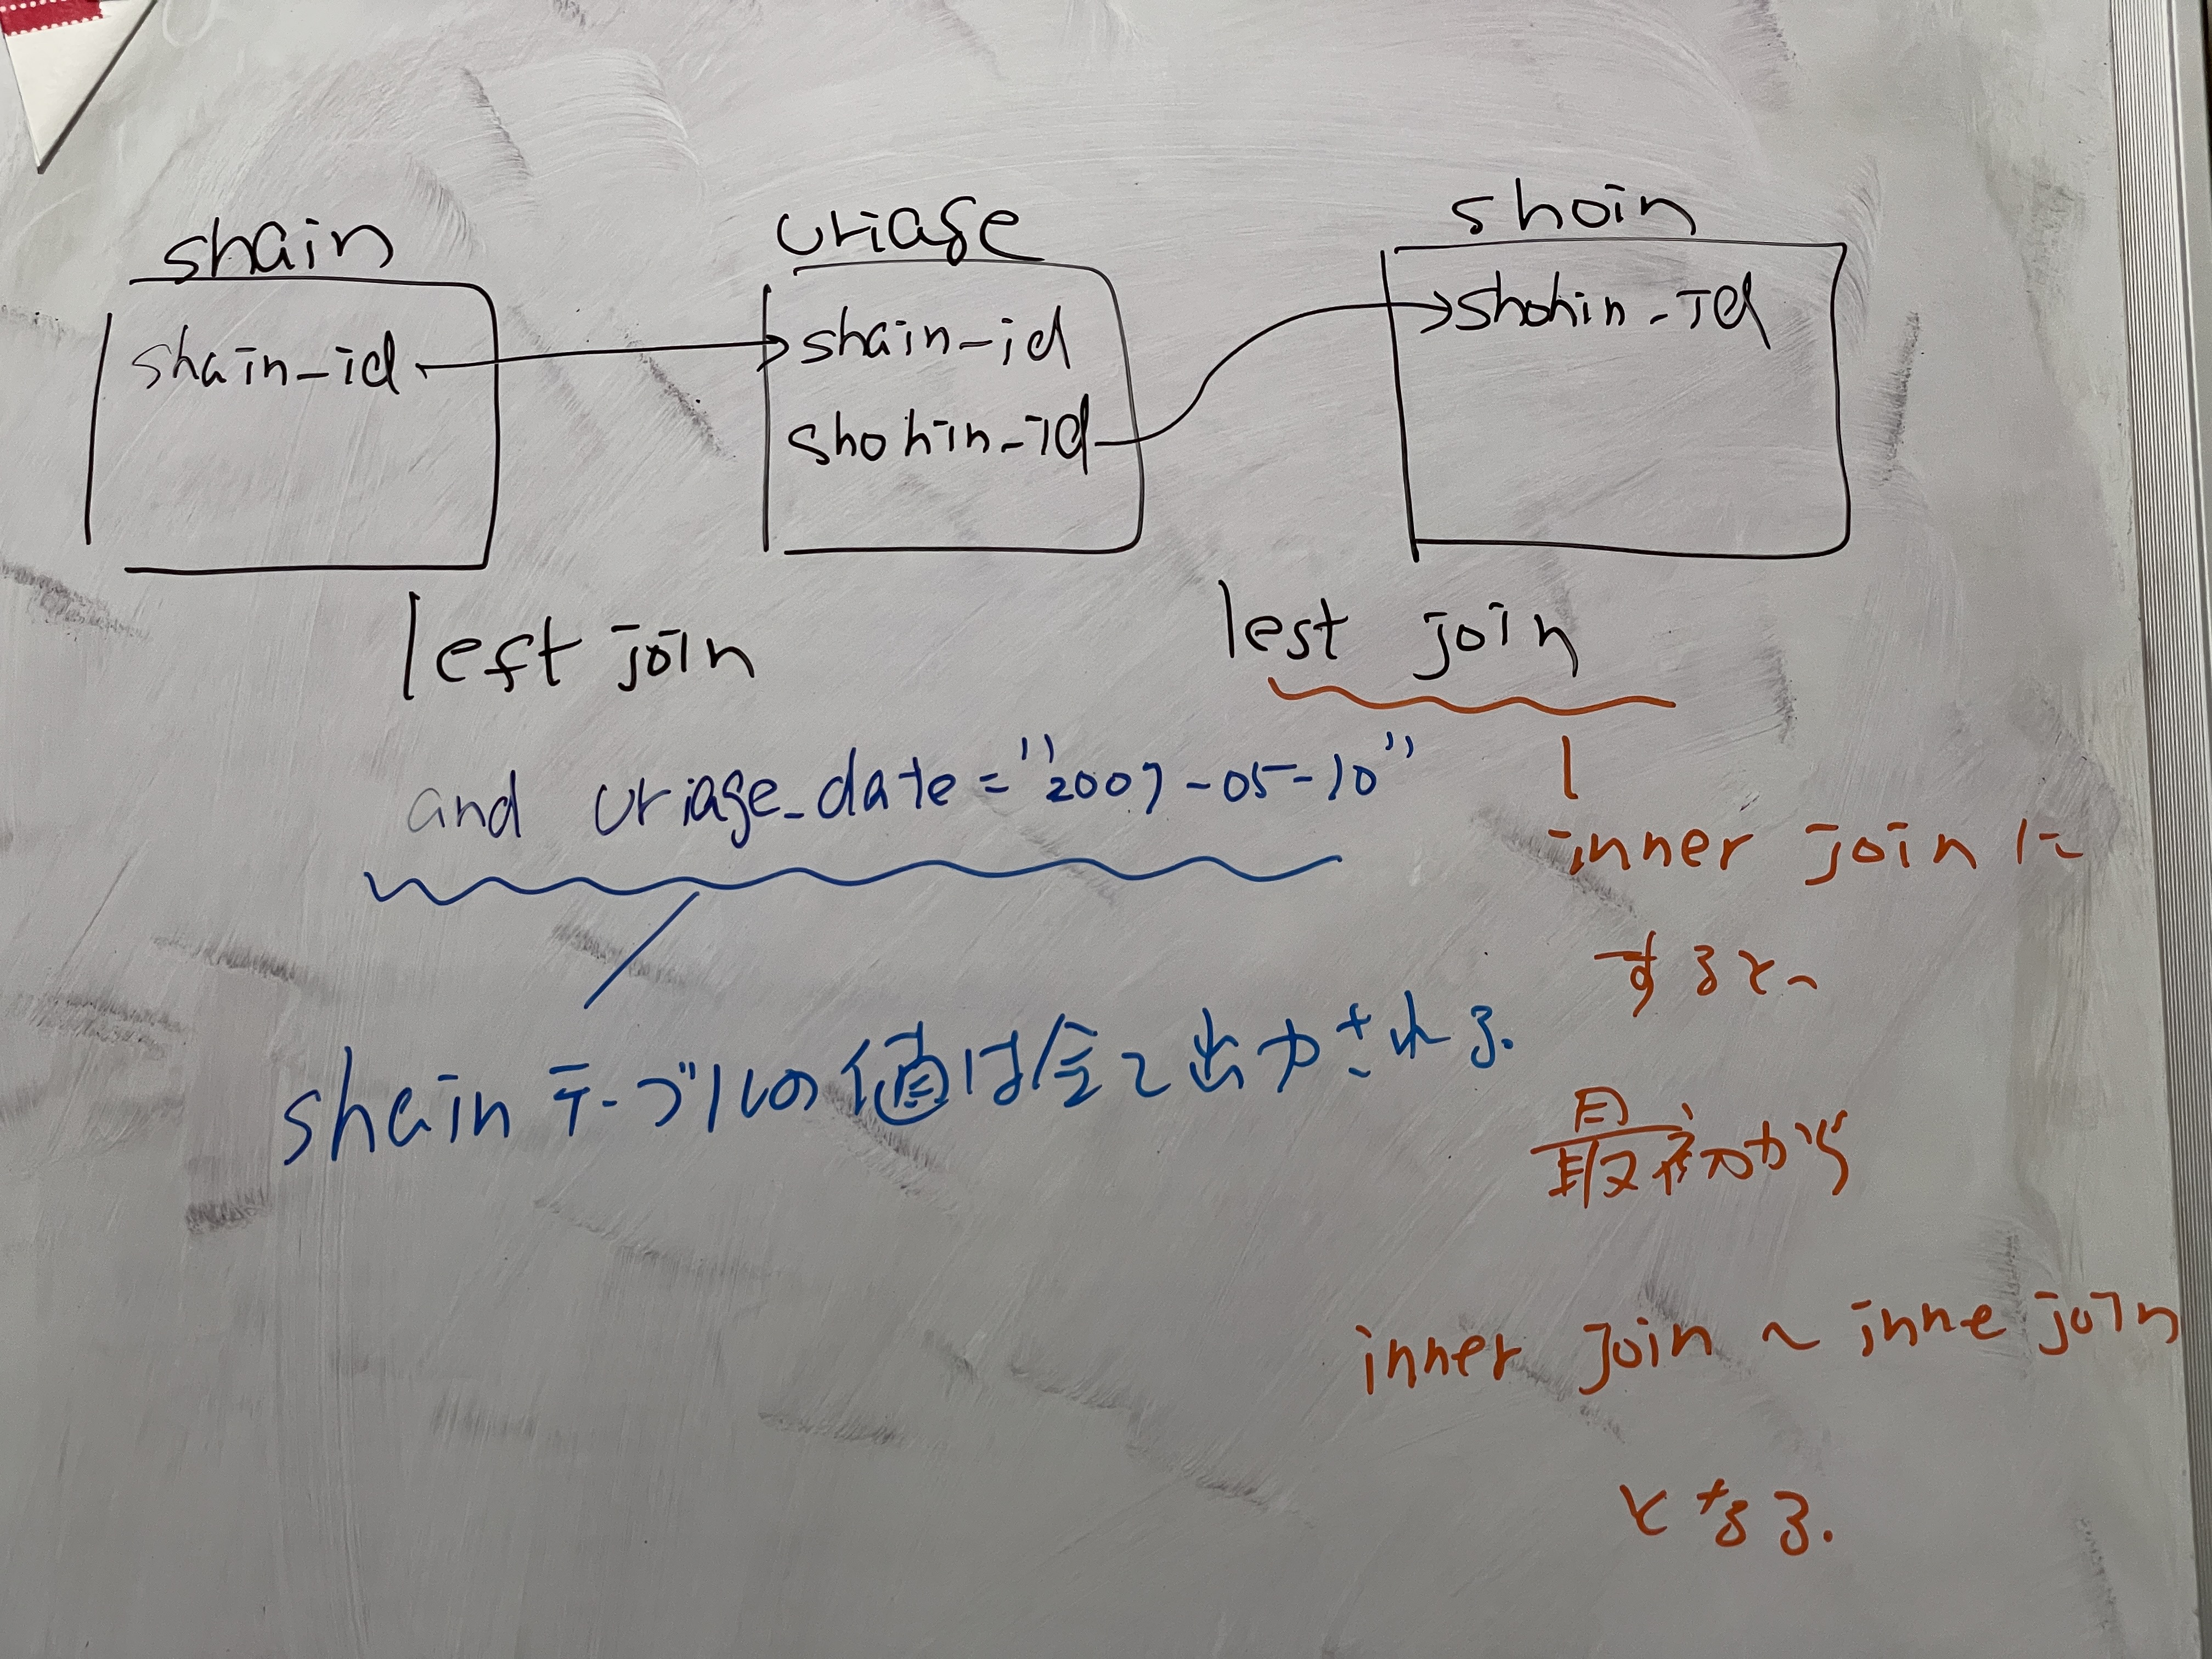 shain
uriage
shoin
shain-id
shain-id
shohin-id
shohin-id
left join
lest join
and uriage_date="2007-05-10"
shainテーブルの値は全て出力される.
inner joinに
すると、
最初から
inner join ~ inne join
となる.